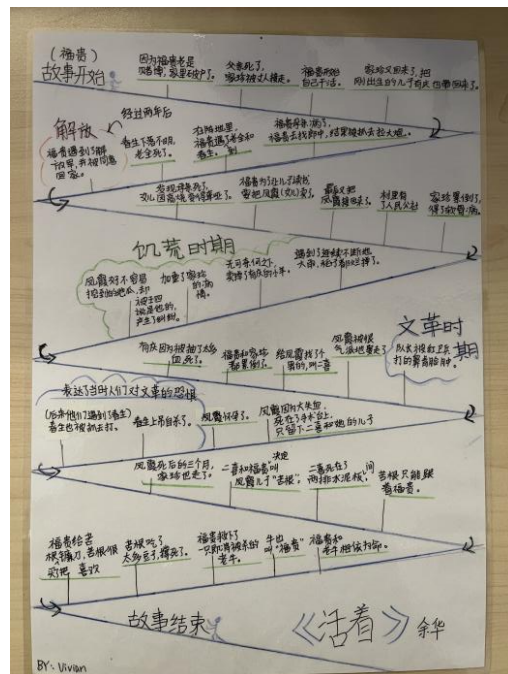 (福贵)
故事开始
因为福贵老是
赌博,家里破产了。
父亲死了,
家珍被丈人接走。
福贵开始
自己干活。
家珍又回来了,把
刚出生的儿子有庆也带回来了。
解放
经过两年后
福贵遇到了解
放军,并被同意
回家。
春生下落不明,
老全死了。
在阵地里,
福贵遇了老全和
春生。
福贵母亲病了,
福贵去找郎中,结果被抓去拉大炮。
发现母亲死了,
女儿因高烧变得聋哑了。
福贵为了让儿子读书
要把凤霞(女儿)卖了。
最后又把
凤霞接回来了。
村里有
了人民公社
家珍累倒了,
得了软骨病。
饥荒时期
凤霞好不容易
挖到的地瓜,却
被王四
说是他的,
产生了纠纷。
加重了家珍
的病
情。
无可奈何之下,
卖掉了有庆的小羊。
遇到了连续不断地
大雨,稻子都烂掉了。
文革时
期
有庆因为被抽了太多
血,死了。
福贵和家珍
都累倒了。
给凤霞找了个
男的,叫二喜
凤霞被很
气派地娶走了
队长被红卫兵
打的鼻青脸肿。
表达了当时人们对文革的恐惧
(后来他们遇到了春生)
春生也被抓去打。
春生上吊自杀了。
凤霞怀孕了。
凤霞因为大失血,
死在了手术台上,
只留下二喜和她的儿子
凤霞死后的三个月,
家珍也走了。
二喜和福贵决定叫
凤霞儿子“苦根”。
二喜死在了
两排水泥板间
苦根只能跟
着福贵。
福贵给苦
根镰刀,苦根很
喜欢
苦根吃了
太多豆子,撑死了。
福贵救下了
一只即将被杀的
老牛。
牛也
叫“福贵”
福贵和
老牛相依为命。
故事结束
《活着》 余华
BY: Vivian